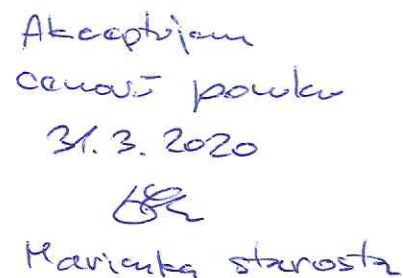 Akceptujem
cenovú ponuku
31.3.2020
Marianka starosta